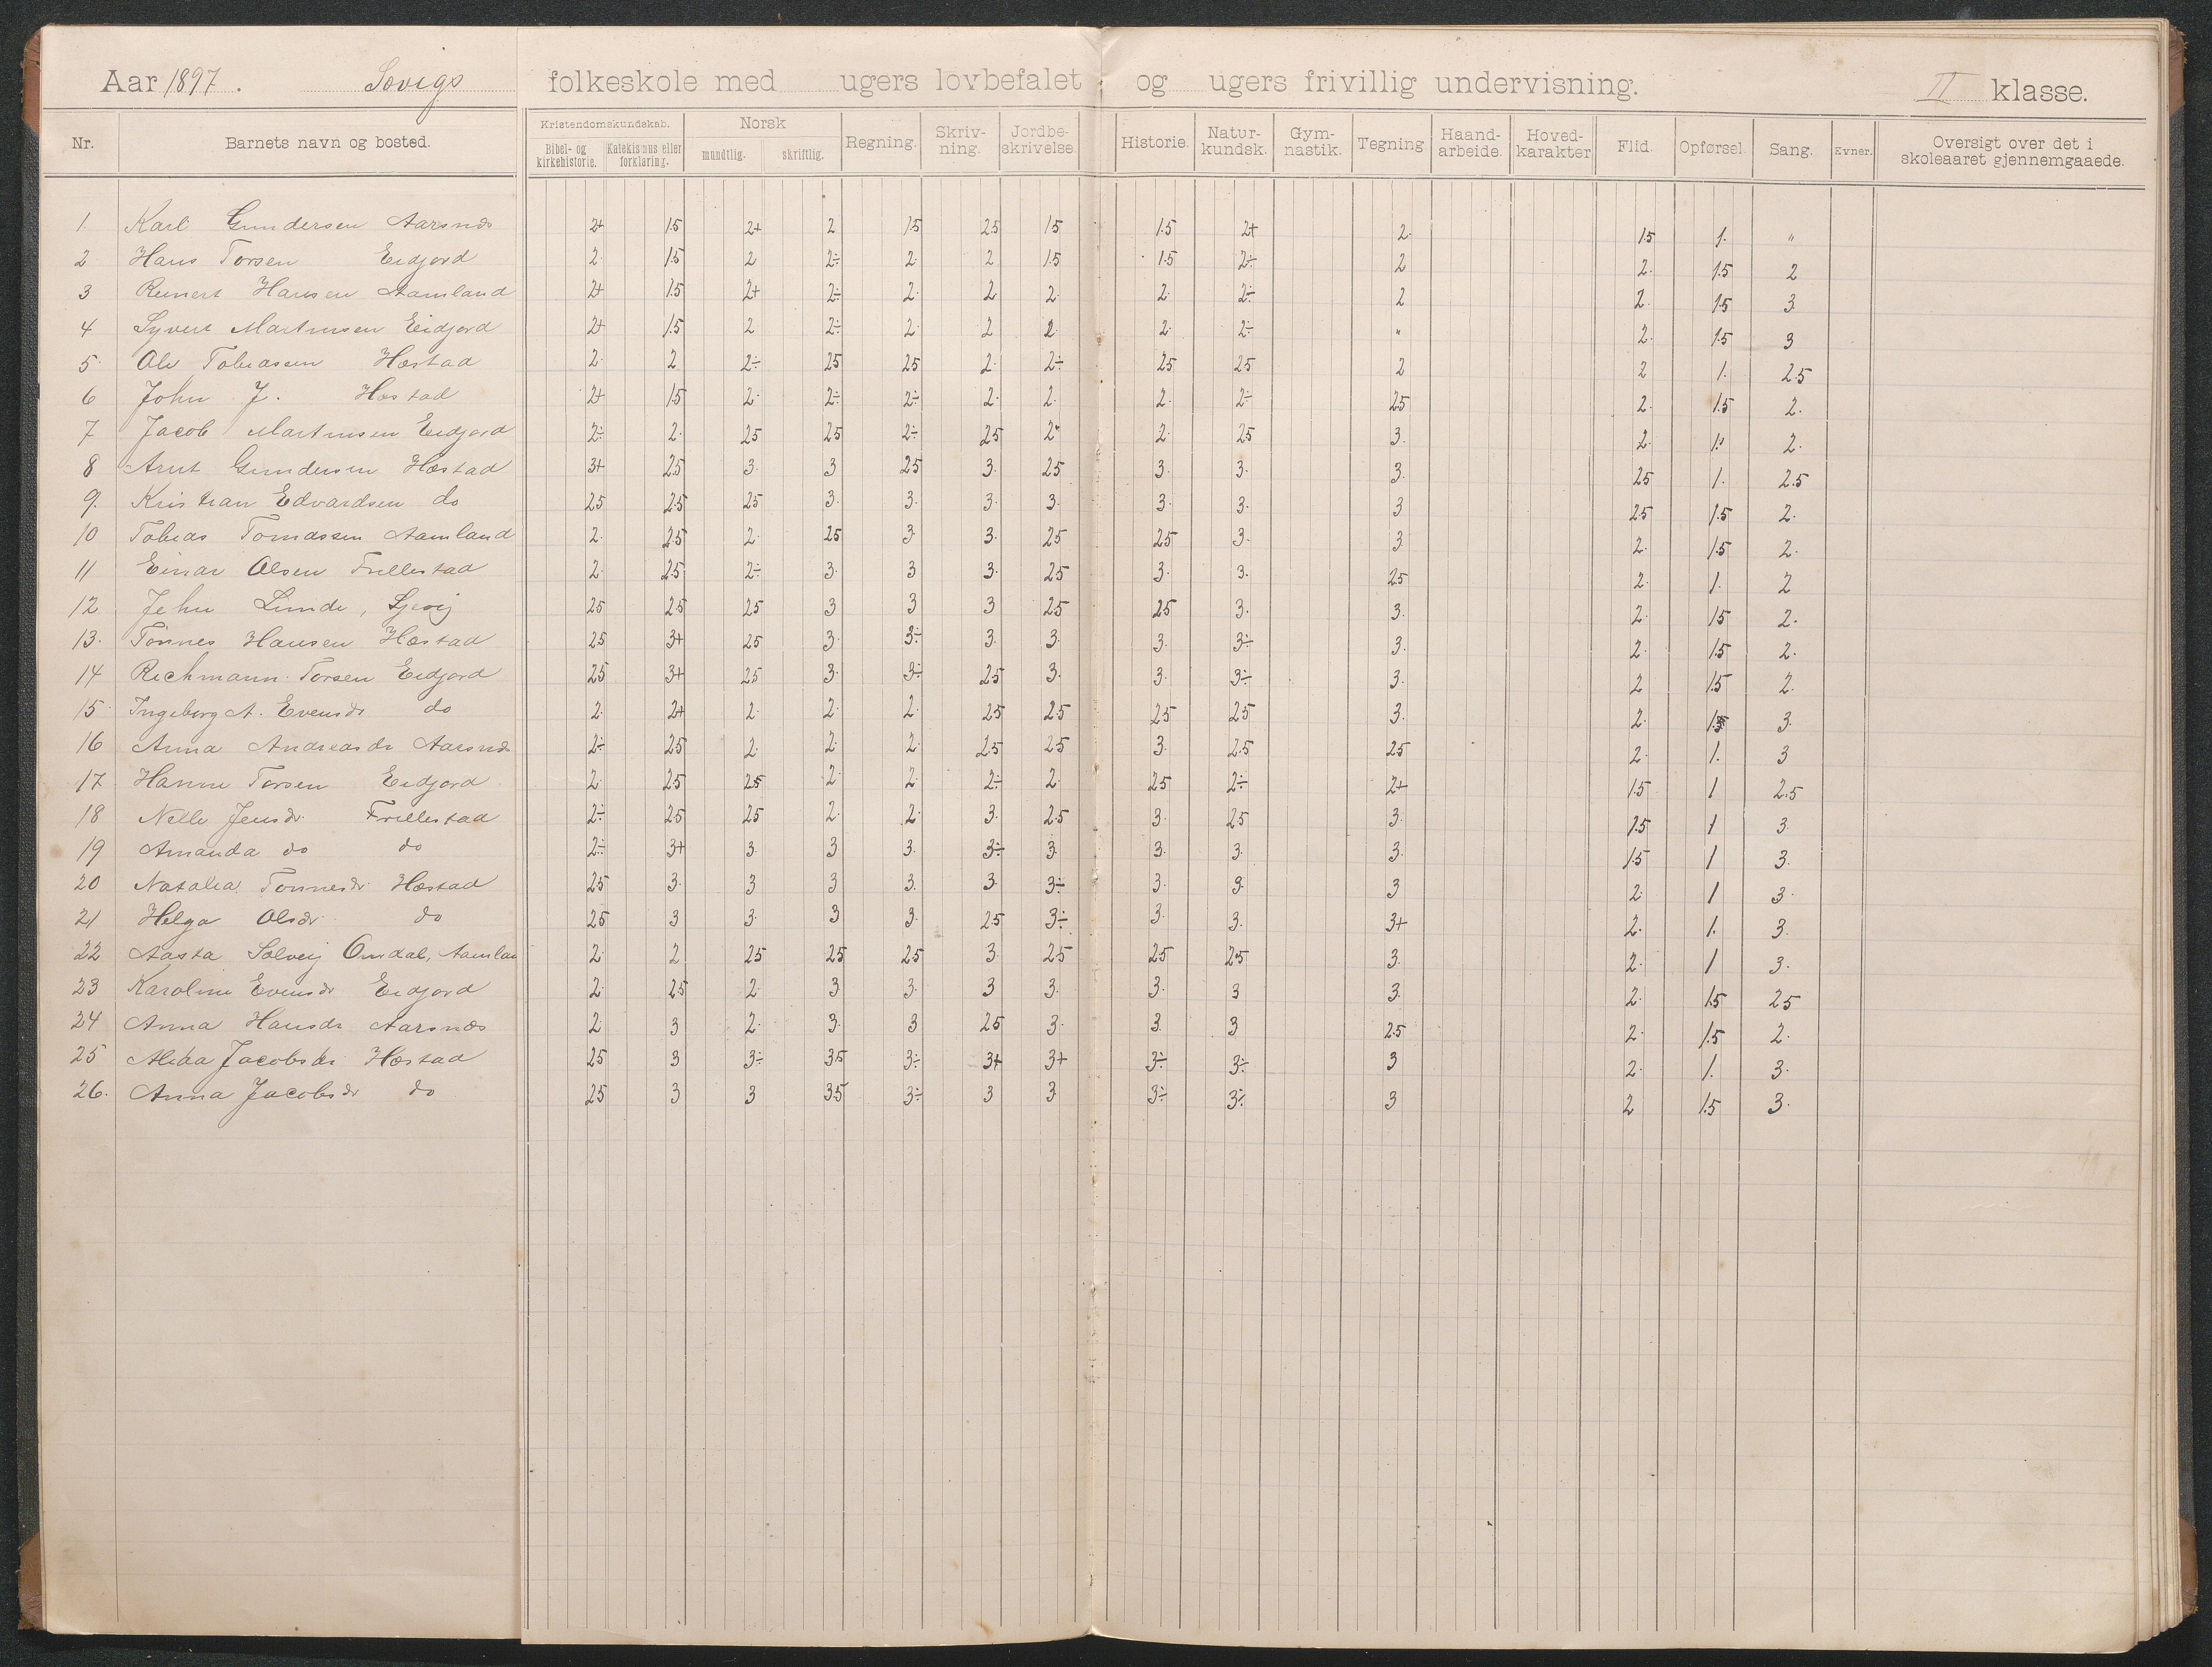 Aar 1897. Sovigs folkeskole med ugers lovbefalet og ugers frivillig undervisning. II klasse.
Nr. Barnets navn og bosted. Kristendomskundskab. Bibel- og kirkehistorie. Katekismus eller forklaring. Norsk mundtlig. skriftlig. Regning. Skriv-ning. Jordbe-skrivelse. Historie. Natur-kundsk. Gym-nastik. Tegning Haand-arbeide. Hoved-karakter Flid. Opførsel. Sang. Evner. Oversigt over det i skoleaaret gjennemgaaede.
1. Karl Gundersen Aarsnes 2+ 1.5 2+ 2 1.5 2.5 1.5 1.5 2+ 2. 1.5 1. "
2 Hans Torsen Eidjord 2. 1.5 2 2÷ 2. 2 1.5 1.5 2÷ 2 2. 1.5 2
3 Reinert Hansen Aamland 2+ 1.5 2+ 2÷ 2. 2 2. 2. 2÷ 2 2. 1.5 3
4 Syvert Martinsen Eidjord 2+ 1.5 2 2÷ 2. 2 2. 2. 2÷ " 2. 1.5 3
5. Ole Tobiassen Hæstad 2. 2 2÷ 2.5 2.5 2. 2÷ 2.5 2.5 2 2 1. 2.5
6 John J. Hæstad 2+ 1.5 2. 2÷ 2÷ 2. 2. 2. 2÷ 2.5 2. 1.5 2.
7 Jacob Martinsen Eidjord 2÷ 2. 2.5 2.5 2÷ 2.5 2. 2. 2.5 3. 2. 1. 2.
8 Arnt Gundersen Hæstad 3+ 2.5 3. 3 2.5 3. 2.5 3. 3. 3. 2.5 1. 2.5
9. Kristian Edvardsen do 2.5 2.5 2.5 3. 3. 3. 3. 3. 3. 3 2.5 1.5 2.
10 Tobias Tomassen Aamland 2. 2.5 2. 2.5 3 3. 2.5 2.5 3. 3 2. 1.5 2.
11 Einar Olsen Frillestad 2. 2.5 2÷ 3. 3 3. 2.5 3. 3. 2.5 2. 1. 2
12. John Linde, Sjevig 2.5 2.5 2.5 3 3 3 2.5 2.5 3. 3. 2. 1.5 2.
13. Tönnes Hansen Hæstad 2.5 3+ 2.5 3. 3÷ 3. 3. 3. 3÷ 3. 2. 1.5 2.
14 Richmann Torsen Eidjord 2.5 3+ 2.5 3. 3÷ 2.5 3. 3. 3÷ 3. 2 1.5 2.
15. Ingeborg A. Evensdr do 2. 2+ 2. 2. 2. 2.5 2.5 2.5 2.5 3. 2. 1.5 3.
16 Anna Andreasdr Aarsnes 2÷ 2.5 2. 2. 2. 2.5 2.5 3. 2.5 2.5 2. 1. 3
17. Hanne Torsen Eidjord 2. 2.5 2.5 2. 2. 2÷ 2. 2.5 2÷ 2+ 1.5 1 2.5
18 Nelle Jensdr. Frillestad 2÷ 2.5 2.5 2. 2. 3. 2.5 3. 2.5 3. 1.5 1 3.
19 Amanda do do 2÷ 3+ 3. 3 3. 3÷ 3. 3. 3. 3. 1.5 1 3.
20 Natalia Tönnesdr Hæstad 2.5 3. 3 3 3. 3. 3÷ 3. 3. 3 2. 1 3.
21 Helga Olsdr. do 2.5 3 3. 3 3. 2.5 3÷ 3. 3. 3+ 2. 1. 3.
22 Aasta Solveig Omdal, Aamlan 2. 2 2.5 2.5 2.5 3 2.5 2.5 2.5 3. 2. 1 3.
23 Karoline Evensdr Eidjord 2. 2.5 2. 3 3. 3 3. 3. 3 3. 2. 1.5 2.5
24 Anna Hansdr Aarsnæs 2. 3 2. 3. 3 2.5 3. 3 3 2.5 2. 1.5 2.
25 Alida Jacobsdr Hæstad 2.5 3 3÷ 3.5 3÷ 3+ 3+ 3÷ 3÷ 3 2. 1. 3.
26. Anna Jacobsdr do 2.5 3 3 3.5 3÷ 3 3 3÷ 3÷ 3 2 1.5 3.